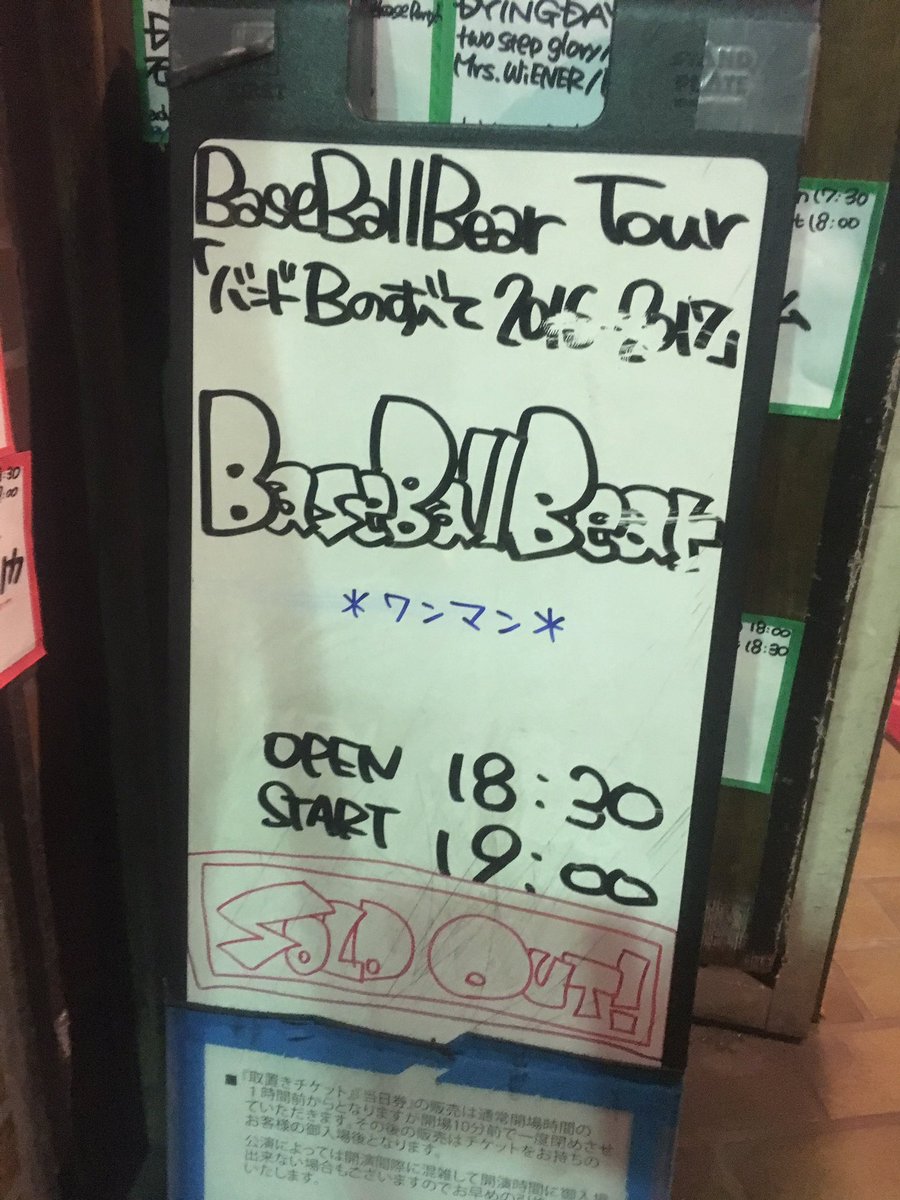 DYINGDAY
two step glory/
Mrs. WiENER/
BaseBallBear Tour
「バンドBのすべて 2016-2017」
BaseBallBear
*ワンマン*
OPEN 18:30
START 19:00
SOLD OUT!
17:30
18:00
18:00
18:30
■『取置きチケット』『当日券』の販売は通常開場時間の
1時間前からとなりますが開場10分前で一度閉めさせ
ていただきます。その後の販売はチケットをお持ちの
お客様の御入場後となります。
公演によっては開演間際に混雑して開演時間に御入場
出来ない場合もございますのでお早めの
いたします。